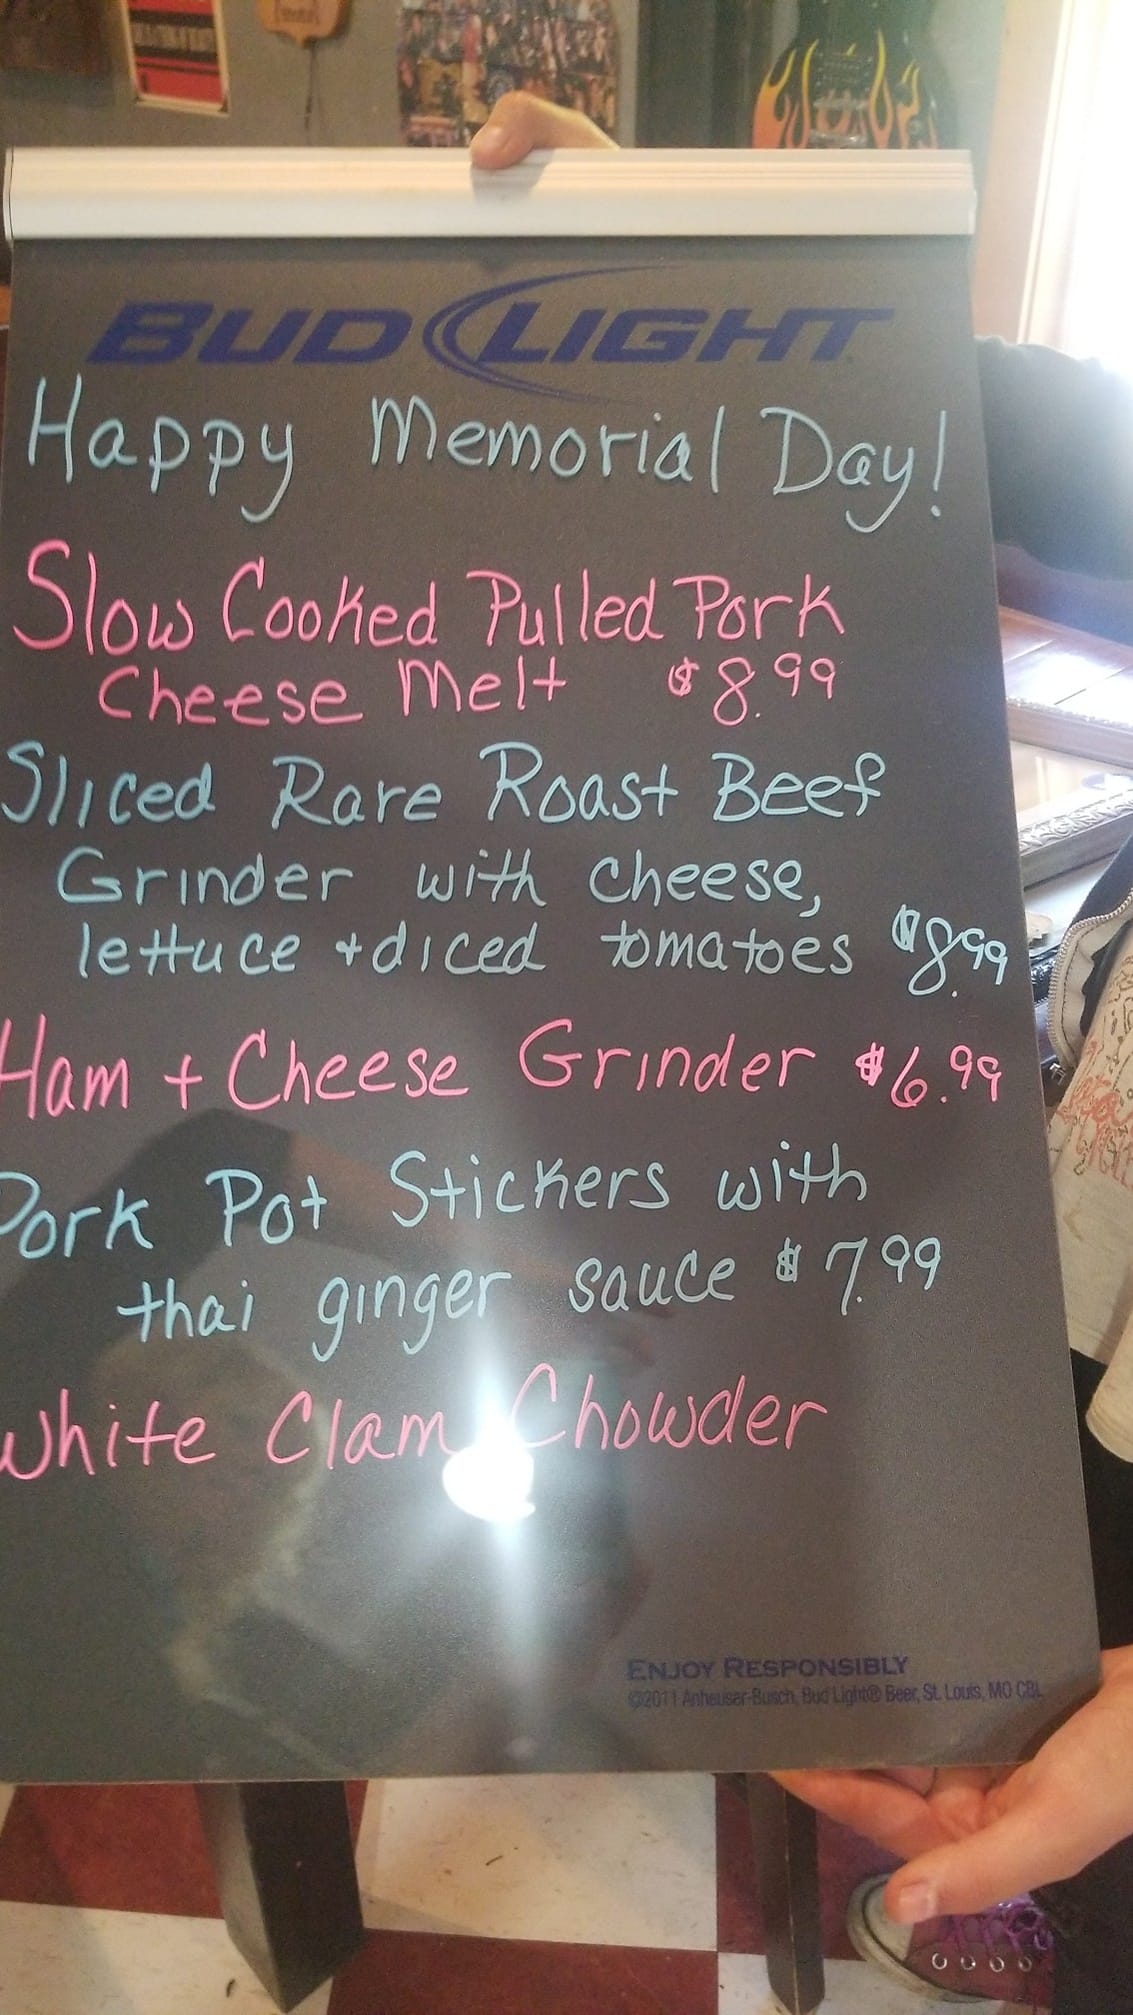 BUD LIGHT
Happy Memorial Day!
Slow Cooked Pulled Pork
Cheese Melt $8.99
Sliced Rare Roast Beef
Grinder with cheese,
lettuce + diced tomatoes $8.99
Ham + Cheese Grinder $6.99
Pork Pot Stickers with
thai ginger sauce $7.99
White Clam Chowder
ENJOY RESPONSIBLY
©2011 Anheuser-Busch, Bud Light® Beer, St. Louis, MO CBL